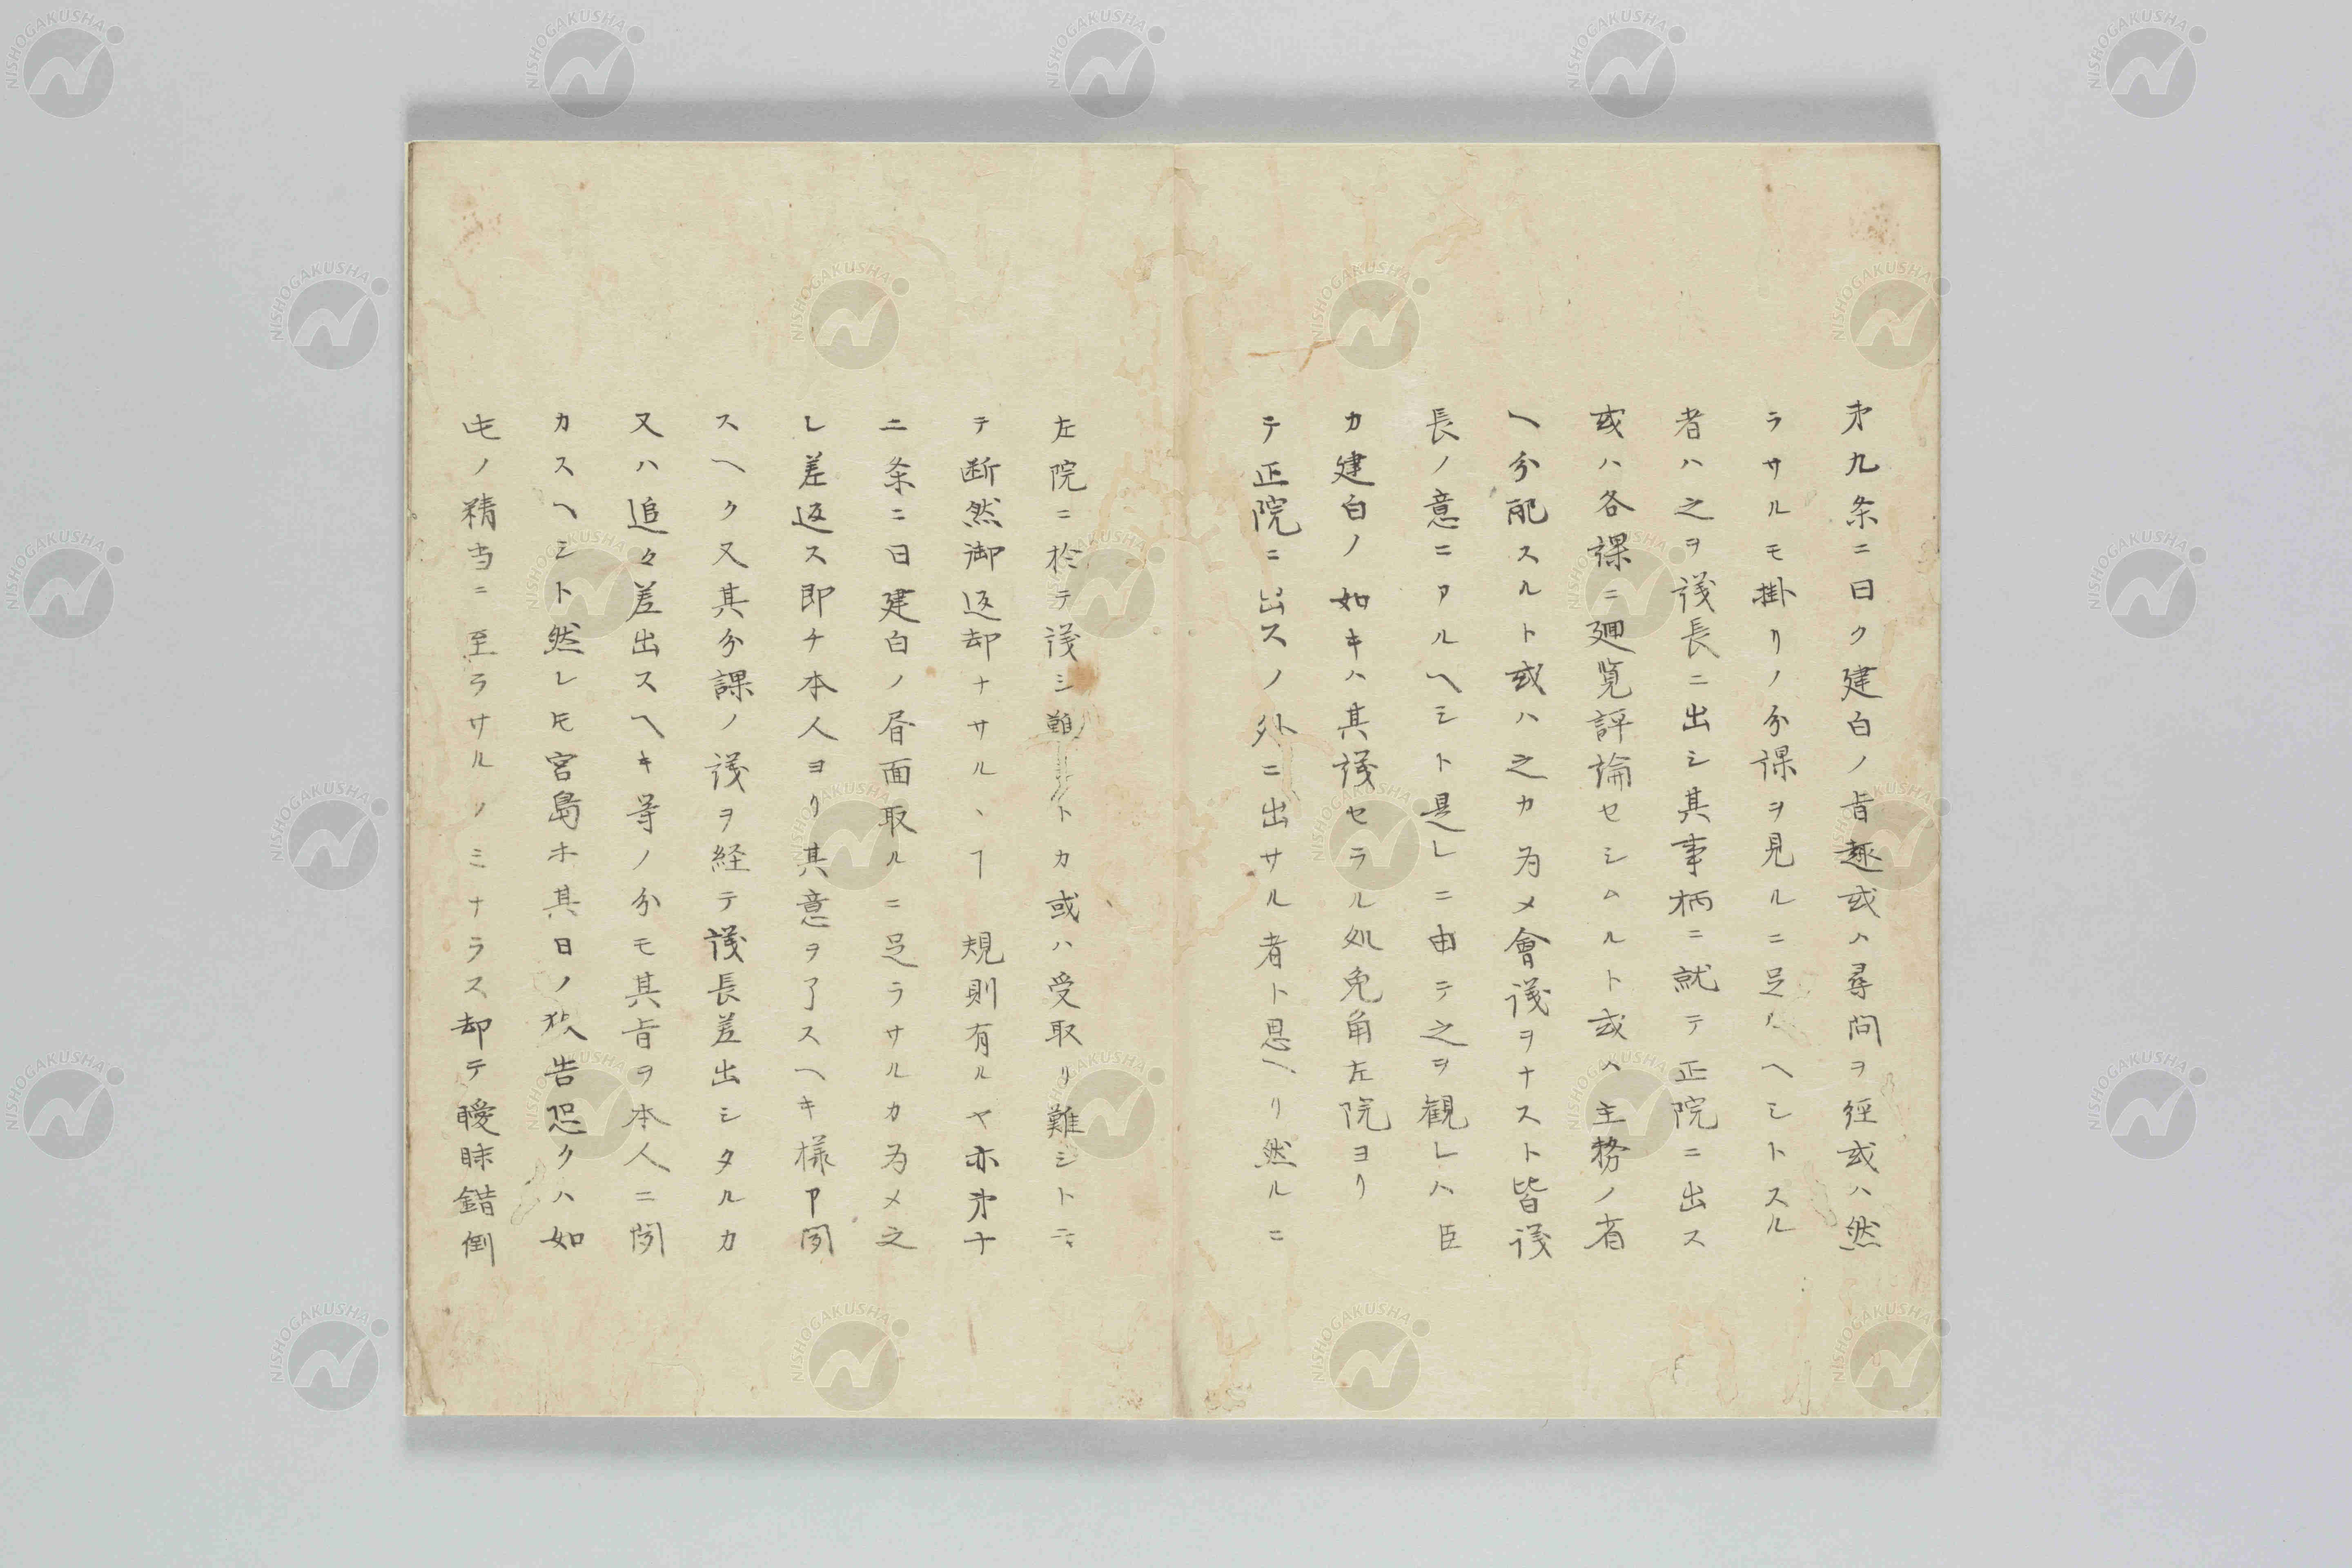 苐九条ニ曰ク建白ノ旨趣或ハ尋問ヲ經或ハ然
ラサルモ掛リノ分課ヲ見ルニ足ルヘシトスル
者ハ之ヲ議長ニ出シ其事柄ニ就テ正院ニ出ス
或ハ各課ニ廻覧評論セシムルト或ハ主務ノ省
ヘ分配スルト或ハ之カ為メ會議ヲナスト皆議
長ノ意ニアルヘシト是レニ由テ之ヲ観レハ臣
カ建白ノ如キハ其議セラル処免角左院ヨリ
テ正院ニ出スノ外ニ出サル者ト思ヘリ然ルニ
左院ニ於テ議シ難シトカ或ハ受取リ難シトニテ
テ断然御返却ナサルヽヿ規則有ルヤ亦苐十
二条ニ曰建白ノ書面取ルニ足ラサルカ為メ之
レ差返ス即チ本人ヨリ其意ヲ了スヘキ様申聞
スヘク又其分課ノ議ヲ経テ議長差出シタルカ
又ハ追々差出スヘキ等ノ分モ其旨ヲ本人ニ聞
カスヘシト然レ𪜈宮島ホ其日ノ状告恐クハ如
此ノ精当ニ至ラサルノミナラス却テ曖昧錯倒
NISHOGAKUSHA